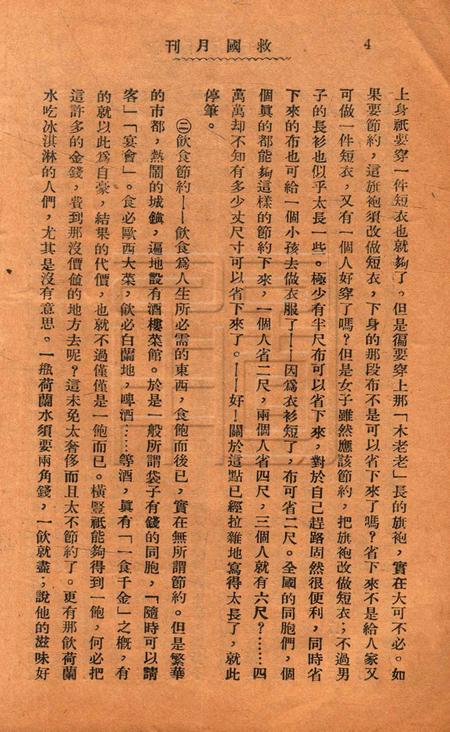 刊月國救
4
上身祇要穿一件短衣也就夠了。但是徧要穿上那「木老老」長的旗袍，實在大可不必。如
果要節約，這旗袍須改做短衣，下身的那段布不是可以省下來了嗎？省下來不是給人家又
可做一件短衣，又有一個人好穿了嗎？但是女子雖然應該節約，把旗袍改做短衣；不過男
子的長衫也似乎太長一些。極少有半尺布可以省下來，對於自己趕路固然很便利，同時省
下來的布也可給一個小孩去做衣服了——因爲衣衫短了，布可省二尺。全國的同胞們，個
個眞的都能夠這樣的節約下來，一個人省二尺，兩個人省四尺，三個人就有六尺？……四
萬萬却不知有多少丈尺寸可以省下來了。——好！關於這點已經拉雜地寫得太長了，就此
停筆。
㊁飲食節約——飲食爲人生所必需的東西，食飽而後已，實在無所謂節約。但是繁華
的市都，熱鬧的城鎮，遍地設有酒樓菜館。於是一般所謂袋子有錢的同胞，「隨時可以請
客」「宴會」。食必歐西大菜，飲必白蘭地，啤酒……等酒，眞有「一食千金」之槪，有
的就以此爲自豪，結果的代價，也就不過僅僅是一飽而已。橫豎祇能夠得到一飽，何必把
這許多的金錢，費到那沒價值的地方去呢？這未免太奢侈而且太不節約了。更有那飲荷蘭
水吃冰淇淋的人們，尤其是沒有意思。一瓶荷蘭水須要兩角錢，一飲就盡；說他的滋味好